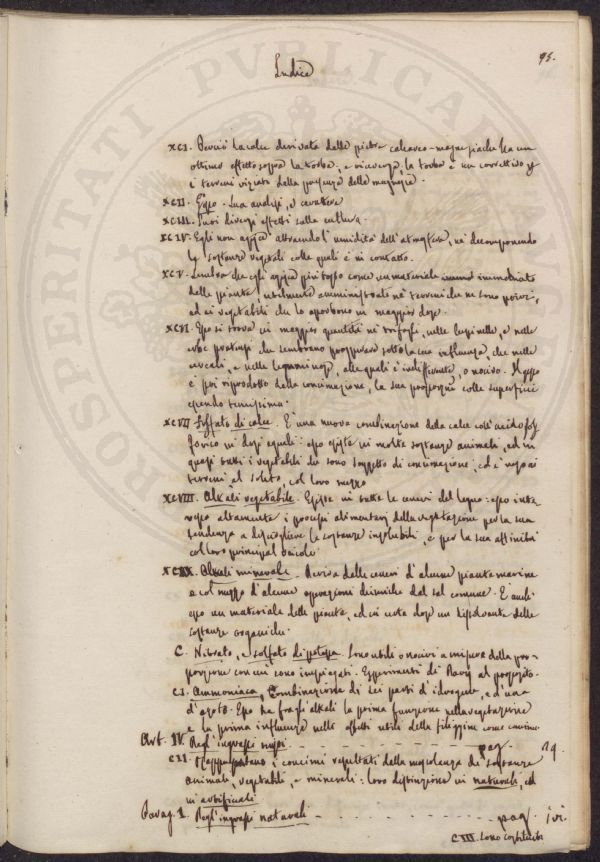 95.
Indice
XCI. Perciò la calce derivata dalle pietre calcareo-magnesiache ha un
ottimo effetto sopra la torba, e viceversa la torba è un correttivo pr
i terreni viziati dalla presenza della magnesia.
XCII. Gesso. Sua analisi, e carattere
XCIII. Suoi diversi effetti sulla cultura.
XCIV. Egli non agisce attraendo l'umidità dell'atmosfera, nè decomponendo
le sostanze vegetali colle quali è in contatto.
XCV. Sembra che egli agisca piuttosto come un materiale immediato
delle piante, utilmente amministrato ne' terreni che ne sono privi,
ed ai vegetabili che lo assorbono in maggior dose.
XCVI. Esso si trova in maggior quantità ne' trifogli, nelle lupinelle, e nelle
erbe pratensi che sembrano prosperare sotto la sua influenza, che nelle
cereali, e nelle leguminose, alle quali è indifferente, o nocivo. Il gesso
è poi riprodotto dalla concimazione, la sua proporzione colle superficie
essendo tenuissima.
XCVII Fosfato di calce. È una nuova combinazione della calce coll'acido fos
forico in dosi eguali: esso esiste in molte sostanze animali, ed in
quasi tutti i vegetabili che sono soggetto di concimazione, ed è reso ai
terreni al solito, col loro mezzo
XCVIII. Alkali vegetabile. Esiste in tutte le ceneri del legno: esso inte-
ressa altamente i processi alimentari della vegetazione per la sua
tendenza a disciogliere le sostanze insolubili, e per la sua affinità
col loro principal veicolo.
XCIX. Alkali minerale. Deriva dalle ceneri d'alcune piante marine
e col mezzo d'alcune operazioni chimiche dal sal comune. È anch'
esso un materiale delle piante, ed in certa dose un dissolvente delle
sostanze organiche.
C. Nitrato, e solfato di potassa. Sono utili o nocivi a misura della pro-
porzione con cui sono impiegati. Esperimenti di Davy al proposito.
CI. Ammoniaca, Combinazione di sei parti d'idrogeno, e d'una
d'azoto. Essa ha fra gli alkali la prima funzione nella vegetazione
e la prima influenza nelli effetti utili della fuliggine come concime.
Art. IV. Degl'ingrassi misti - - - - - - - - - - - pag. 29.
CII. Rappresentano i concimi resultati dalla mescolanza di sostanze
animali, vegetabili, e minerali: loro distinzione in naturali, ed
in artificiali
Parag. I. Degl'ingrassi naturali - - - - - - - - - - pag. ivi.
CIII. Sono costituiti